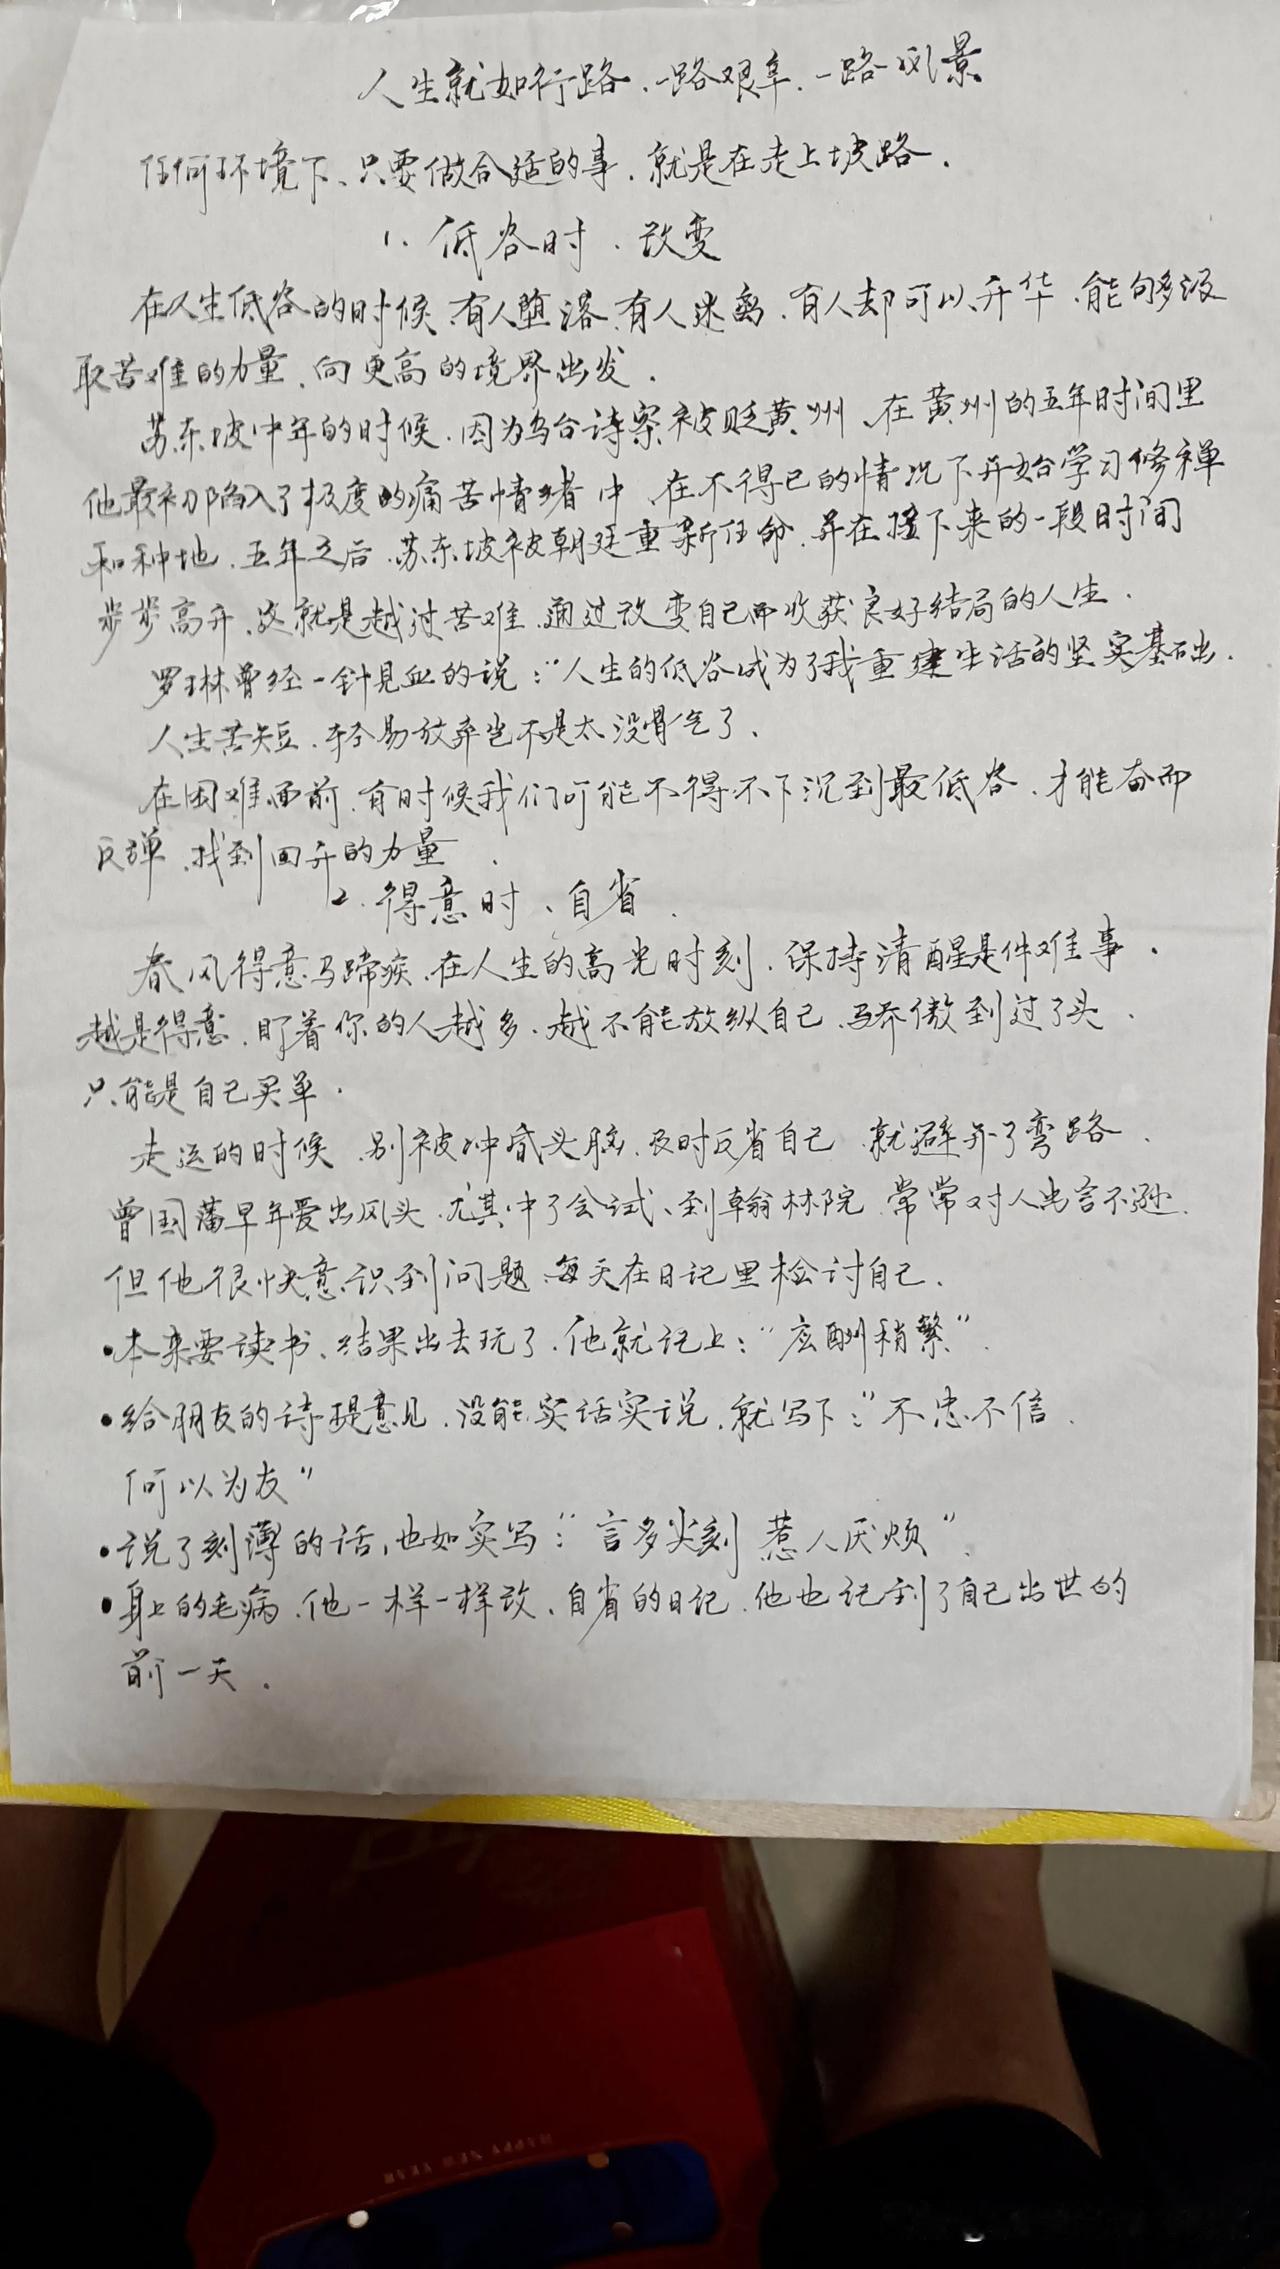 人生就如行路、一路艰辛、一路风景
任何环境下、只要做合适的事、就是在走上坡路、
1、低谷时、改变
在人生低谷的时候、有人堕落、有人迷离、有人却可以升华、能够汲
取苦难的力量、向更高的境界出发、
苏东坡中年的时候、因为乌台诗案被贬黄州、在黄州的五年时间里
他最初陷入了极度的痛苦情绪中、在不得已的情况下开始学习修禅
和种地、五年之后、苏东坡被朝廷重新任命、并在接下来的一段时间
步步高升、这就是越过苦难、通过改变自己而收获良好结局的人生、
罗琳曾经一针见血的说：“人生的低谷成为了我重建生活的坚实基础、
人生苦短、轻易放弃岂不是太没骨气了、
在困难面前、有时候我们可能不得不下沉到最低谷、才能奋而
反弹、找到回升的力量、
2、得意时、自省、
春风得意马蹄疾、在人生的高光时刻、保持清醒是件难事、
越是得意、盯着你的人越多、越不能放纵自己、骄傲到过了头、
只能是自己买单、
走运的时候、别被冲昏头脑、及时反省自己、就避开了弯路、
曾国藩早年爱出风头、尤其中了会试、到翰林院、常常对人出言不逊、
但他很快意识到问题、每天在日记里检讨自己、
•本来要读书、结果出去玩了、他就记上：“应酬稍繁”、
•给朋友的诗提意见、没能实话实说、就写下：“不忠不信、
何以为友”
•说了刻薄的话，也如实写：“言多尖刻 惹人厌烦”、
•身上的毛病、他一样一样改、自省的日记、他也记到了自己出世的
前一天、
HAPPY NEW YEAR